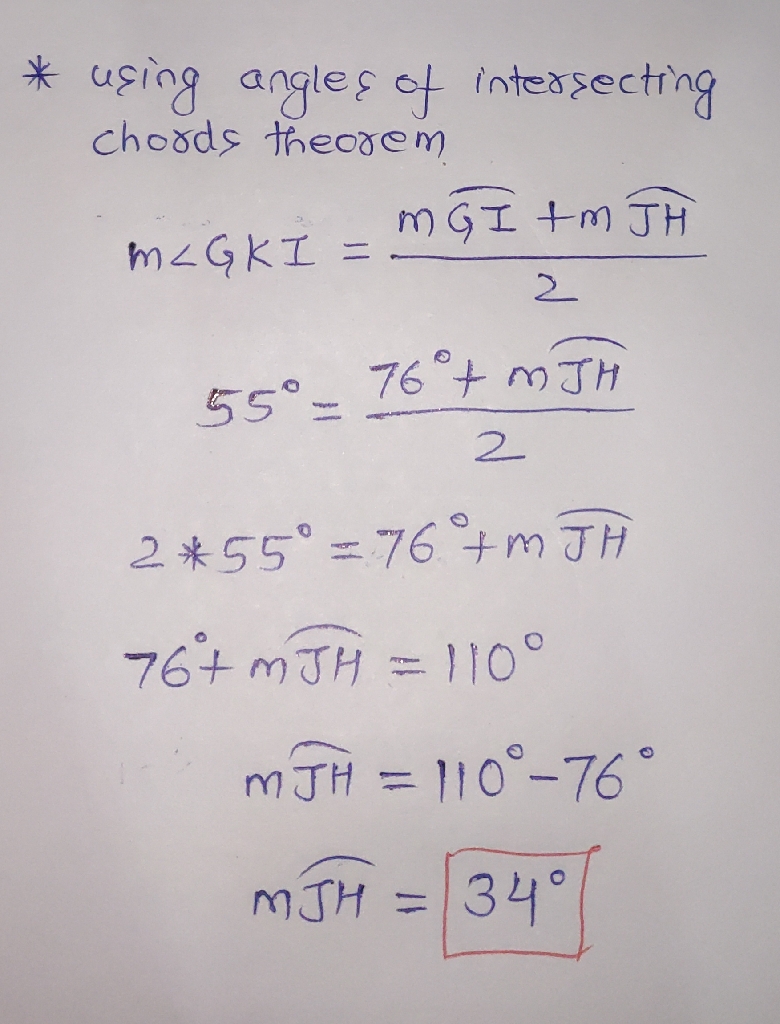 * using angles of intersecting
chords theorem
m∠GKI = (m⌒GI + m⌒JH) / 2
55° = (76° + m⌒JH) / 2
2 * 55° = 76° + m⌒JH
76° + m⌒JH = 110°
m⌒JH = 110° – 76°
m⌒JH = 34°